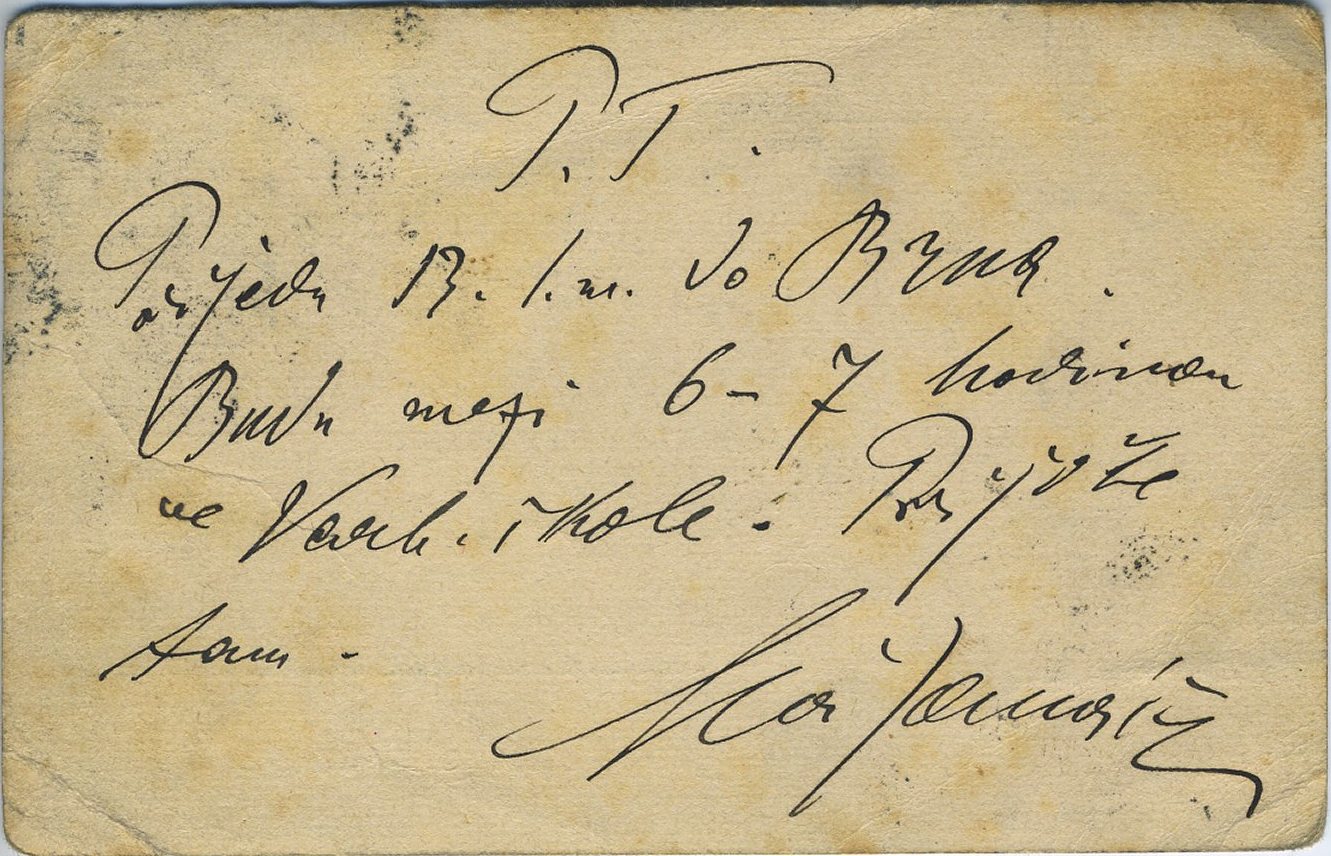 P. T.
Přijedu 13. t. m. do Brna.
Budu mezi 6-7 hodinou
ve Varh. škole. Přijďte
tam.
Leoš Janáček